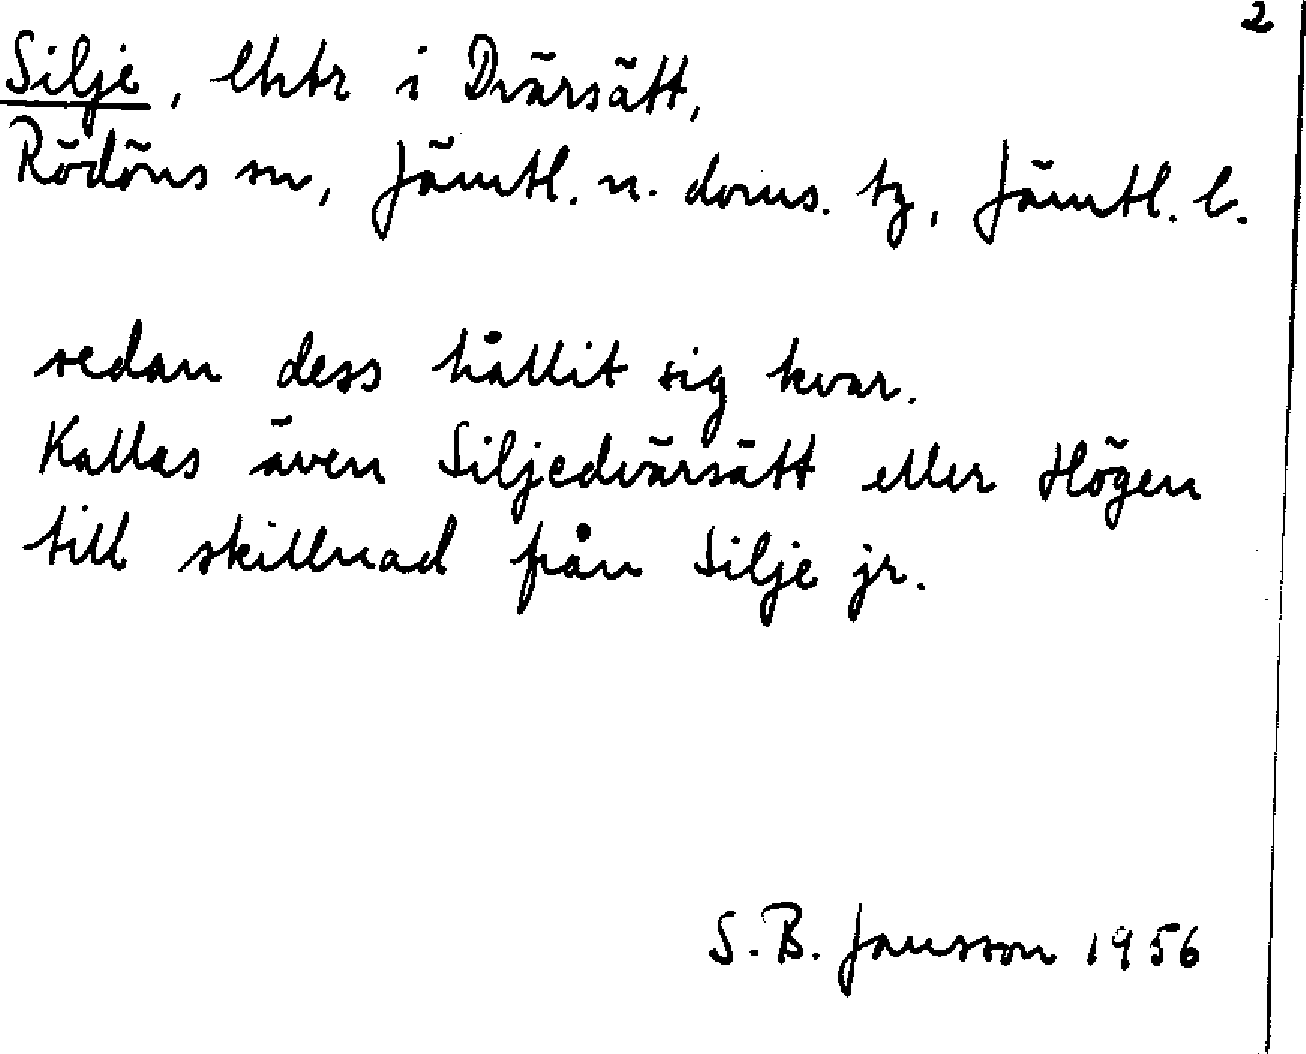 2
Silje, lhtr i Dvärsätt,
Rödöns sn, Jämtl. n. doms. tg, Jämtl. l.
sedan dess hållit sig kvar.
Kallas även Siljedvärsätt eller Högen
till skillnad från Silje jr.
S. B. Jansson 1956